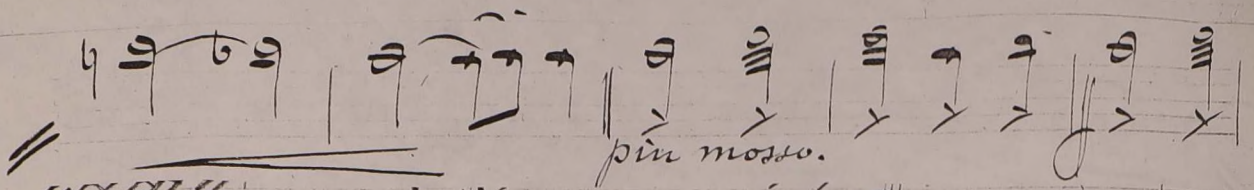 più mosso.